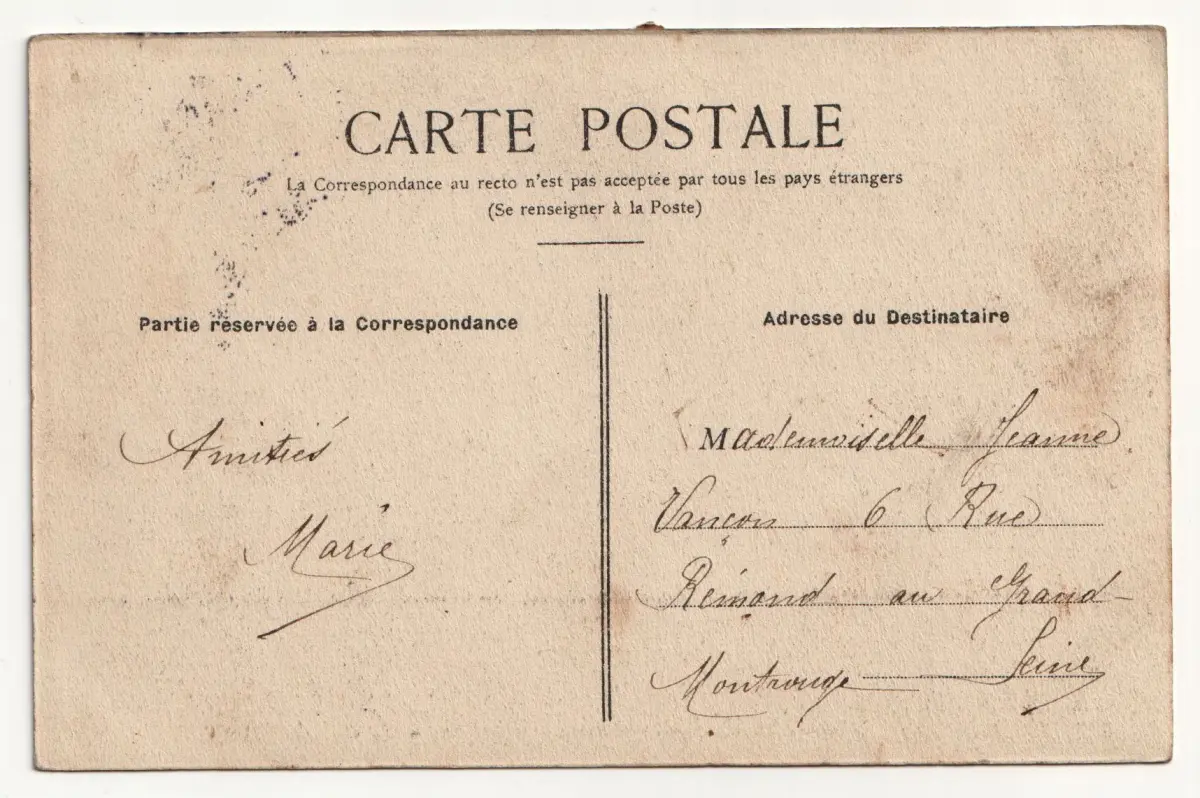 CARTE POSTALE
La Correspondance au recto n'est pas acceptée par tous les pays étrangers
(Se renseigner à la Poste)
Partie réservée à la Correspondance
Amitiés
Marie
Adresse du Destinataire
Mademoiselle Jeanne
Vançon 6 Rue
Rémond au Grand-
Montrouge Seine